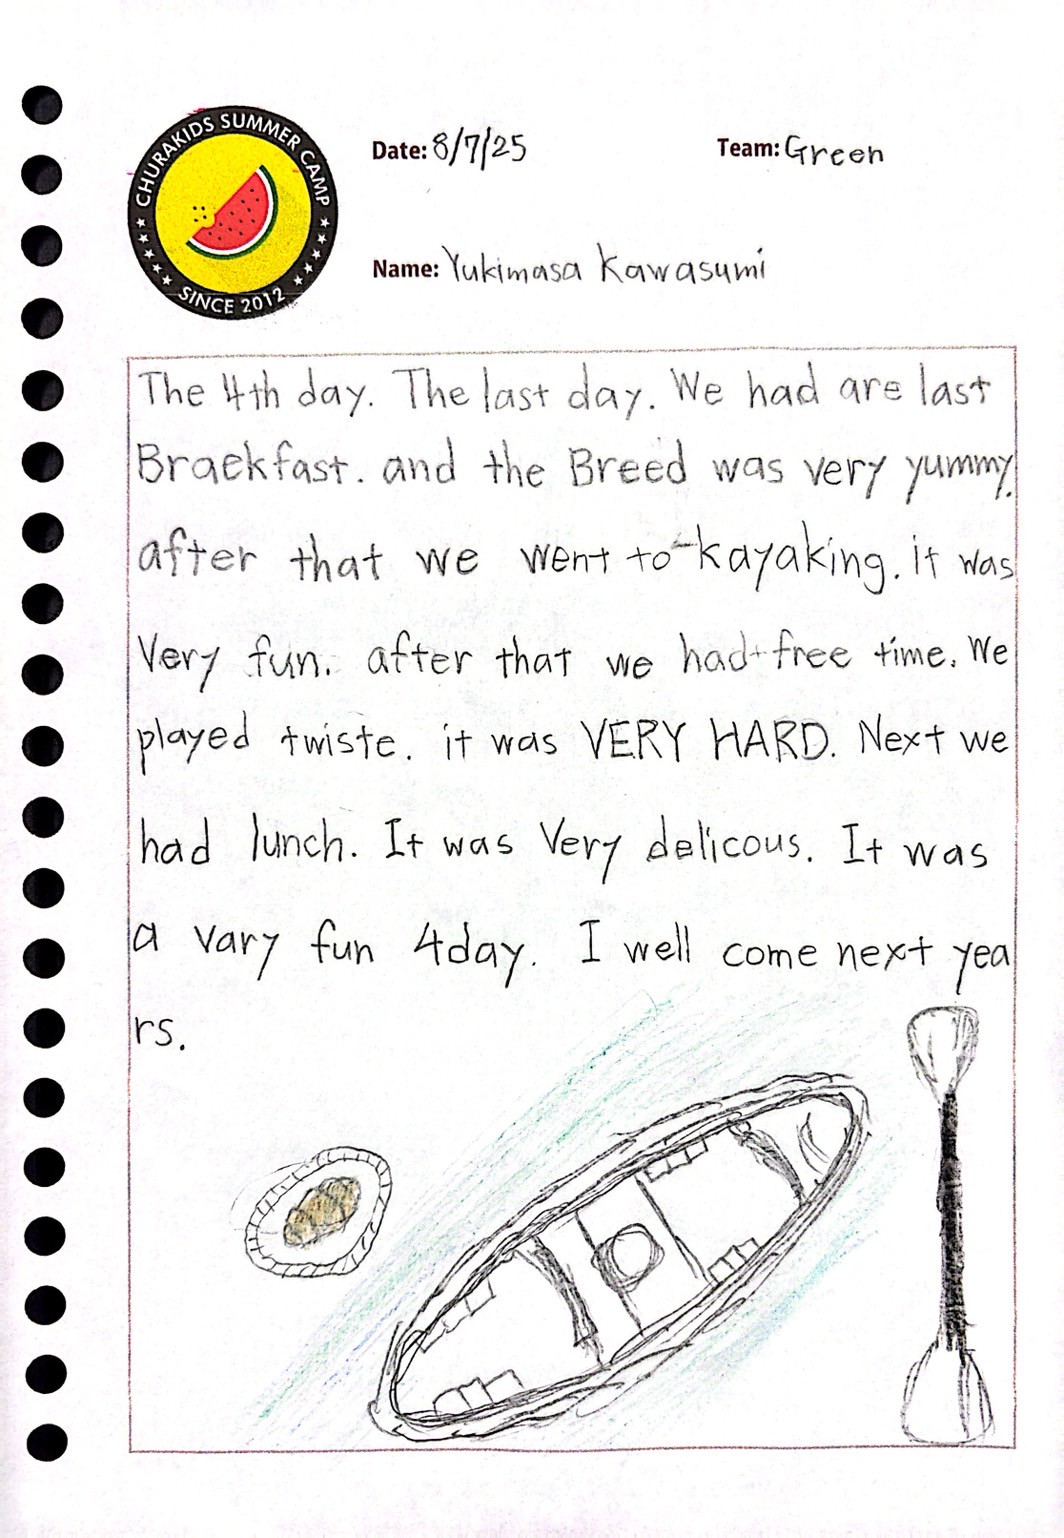 CHURAKIDS SUMMER CAMP
SINCE 2012
Date: 8/7/25
Team: Green
Name: Yukimasa Kawasumi
The 4th day. The last day. We had are last
Braekfast. and the Breed was very yummy.
after that we went to kayaking. it was
Very fun. after that we had free time. We
played twiste. it was VERY HARD. Next we
had lunch. It was Very delicous. It was
a vary fun 4day. I well come next yea
rs.